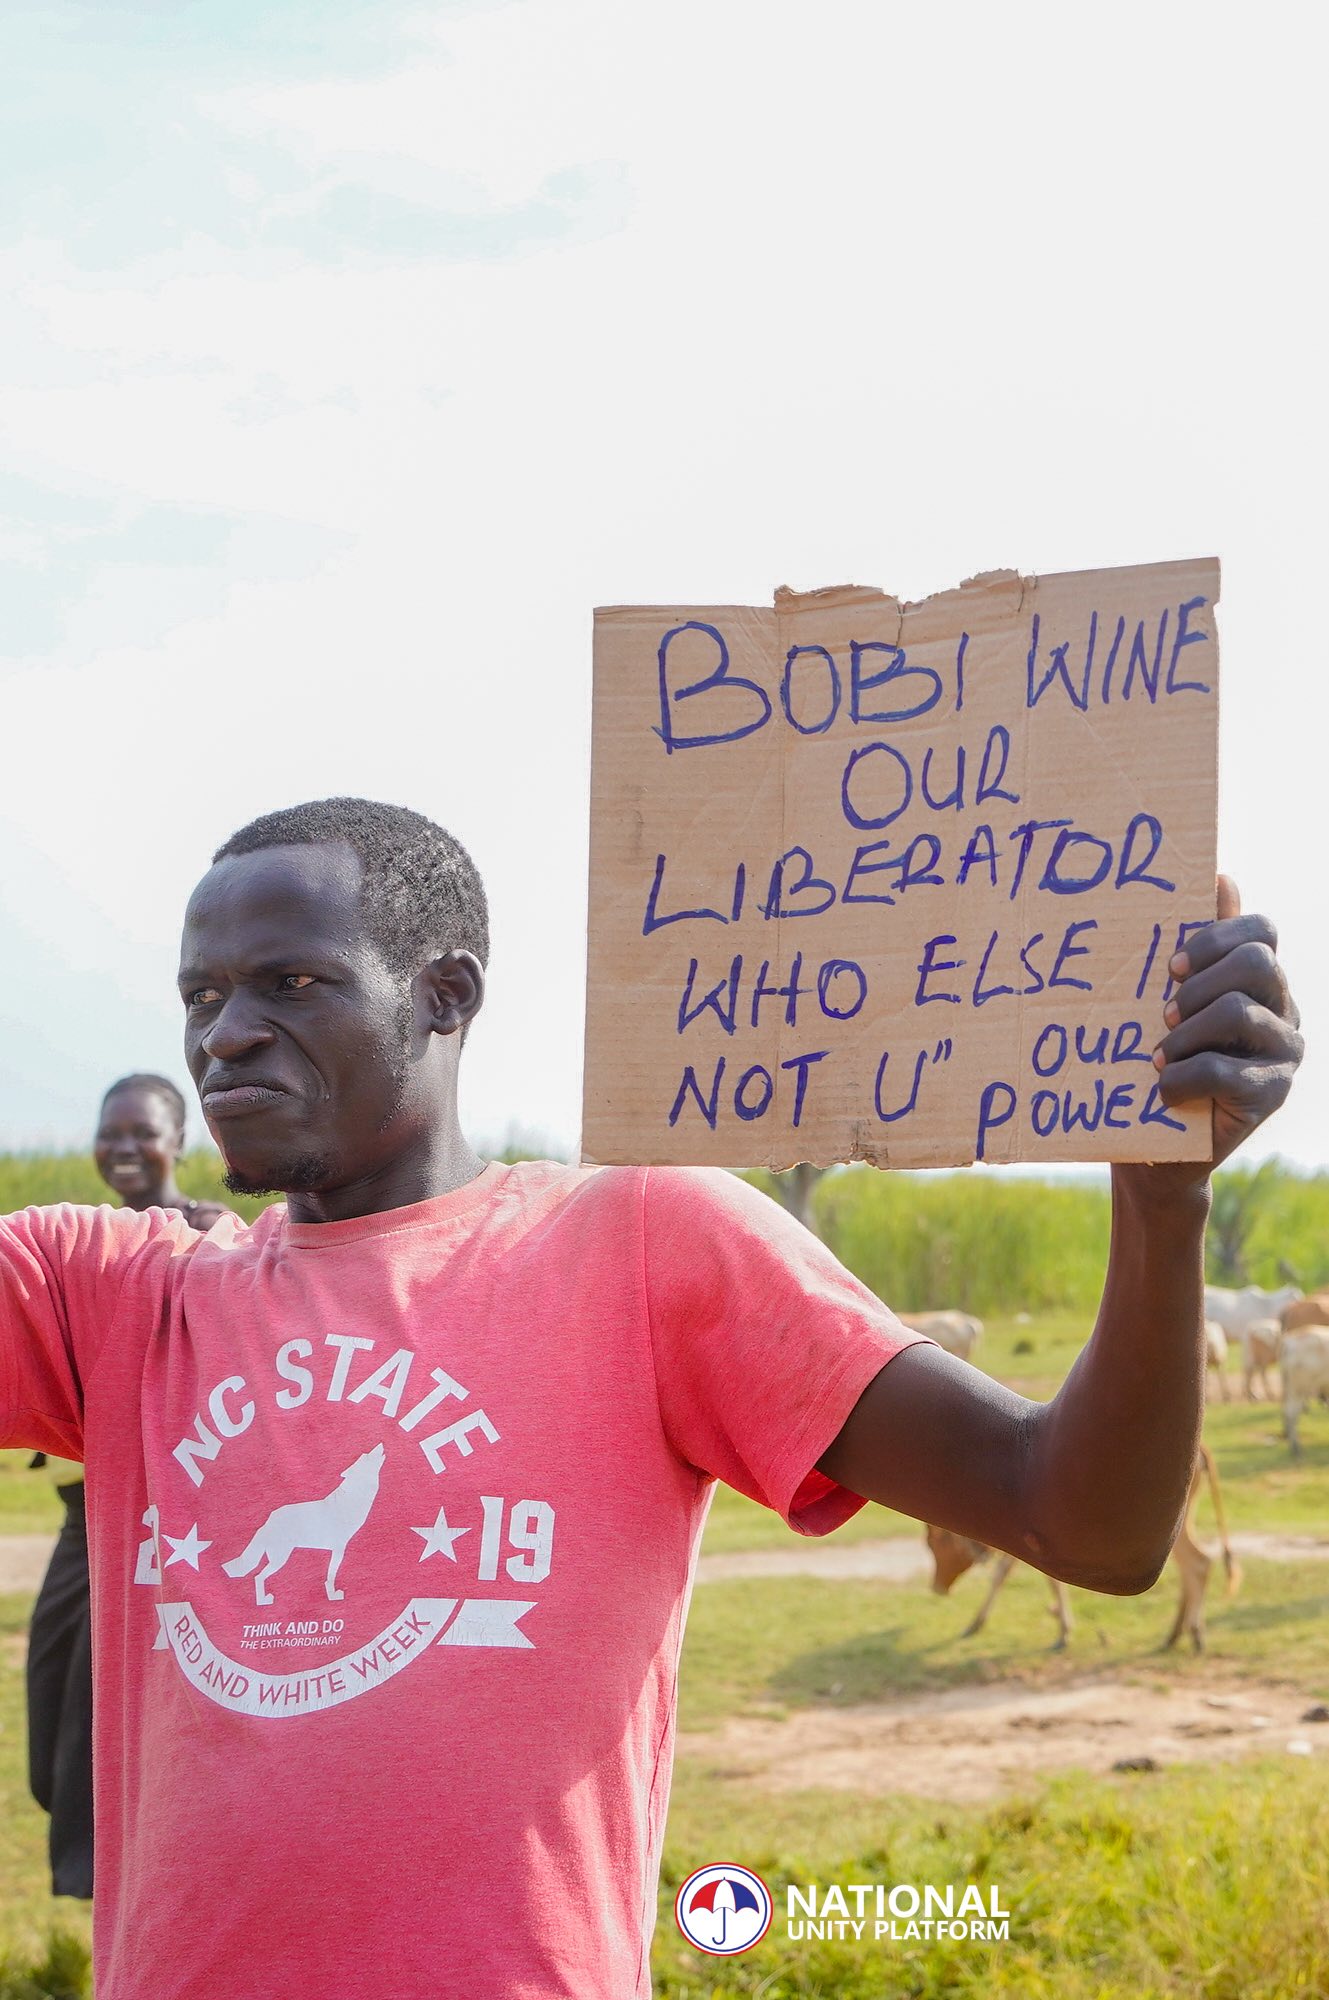 BOBI WINE
OUR
LIBERATOR
WHO ELSE IF
NOT U" OUR
POWER
NC STATE
2 19
THINK AND DO
THE EXTRAORDINARY
RED AND WHITE WEEK
NATIONAL
UNITY PLATFORM